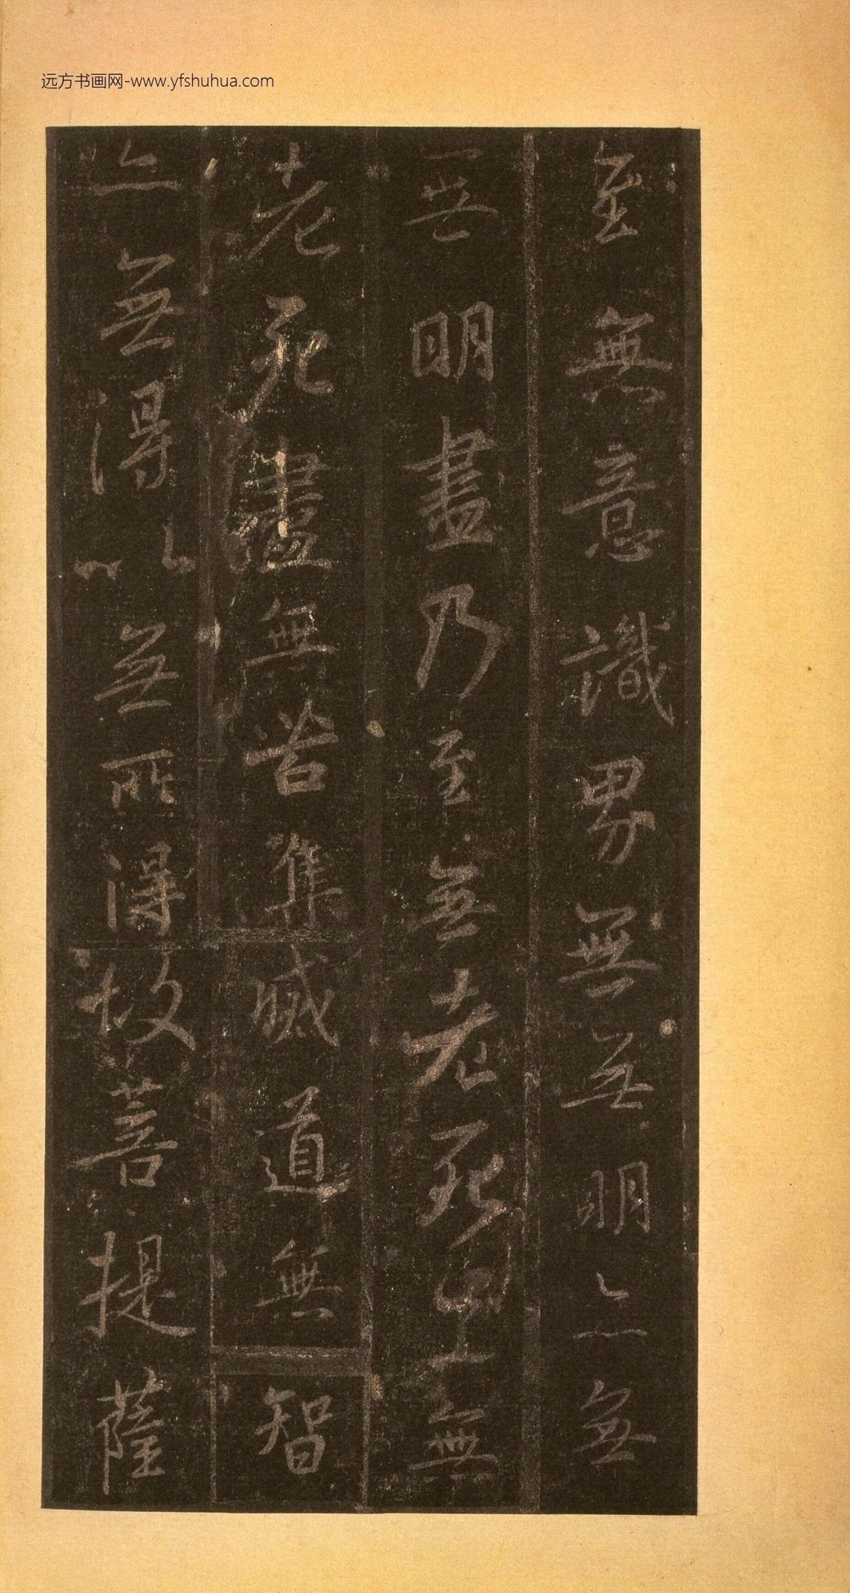 远方书画网-www.yfshuhua.com
至無意識界無無明亦無
無明盡乃至無老死亦無
老死盡無苦集滅道無智
亦無得以無所得故菩提薩